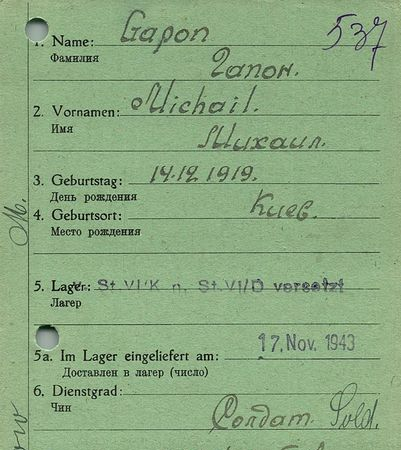 537
1. Name: Gapon
Фамилия
Гапон.
2. Vornamen: Michail.
Имя
Михаил.
3. Geburtstag: 14.12.1919.
День рождения
4. Geburtsort: Киев.
Место рождения
M.
5. Lager: v. St VI/K n. St. VI/D versetzt
Лагер
17. Nov. 1943
5a. Im Lager eingeliefert am:
Доставлен в лагер (число)
6. Dienstgrad:
Чин
Солдат. Sold.